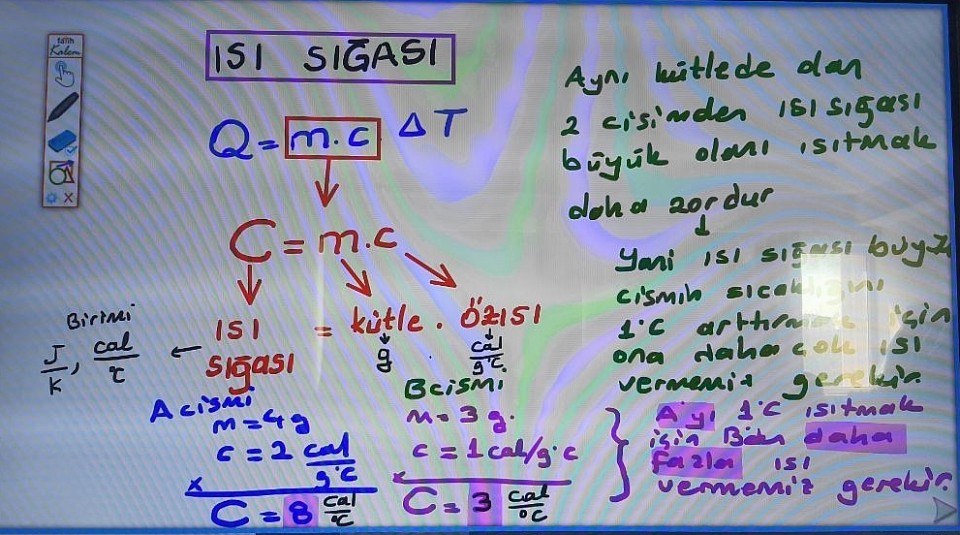 tatih
Kalem
ISI SIĞASI
Q = m.c ΔT
C = m.c
ISI SIĞASI = kütle . ÖZISI
g
cal
g°C
Birimi
J/K, cal/°C
A cismi
m = 4 g
c = 2 cal/g°C
x
C = 8 cal/°C
B cismi
m = 3 g.
c = 1 cal/g°C
x
C = 3 cal/°C
Aynı kütlede olan
2 cisimden ISI SIĞASI
büyük olanı ısıtmak
daha zordur
Yani ISI SIĞASI büyük
cismin sıcaklığını
1°C arttırmak için
ona daha çok ISI
vermemiz gerekir.
A'yı 1°C ısıtmak
için B'den daha
fazla ISI
vermemiz gerekir.